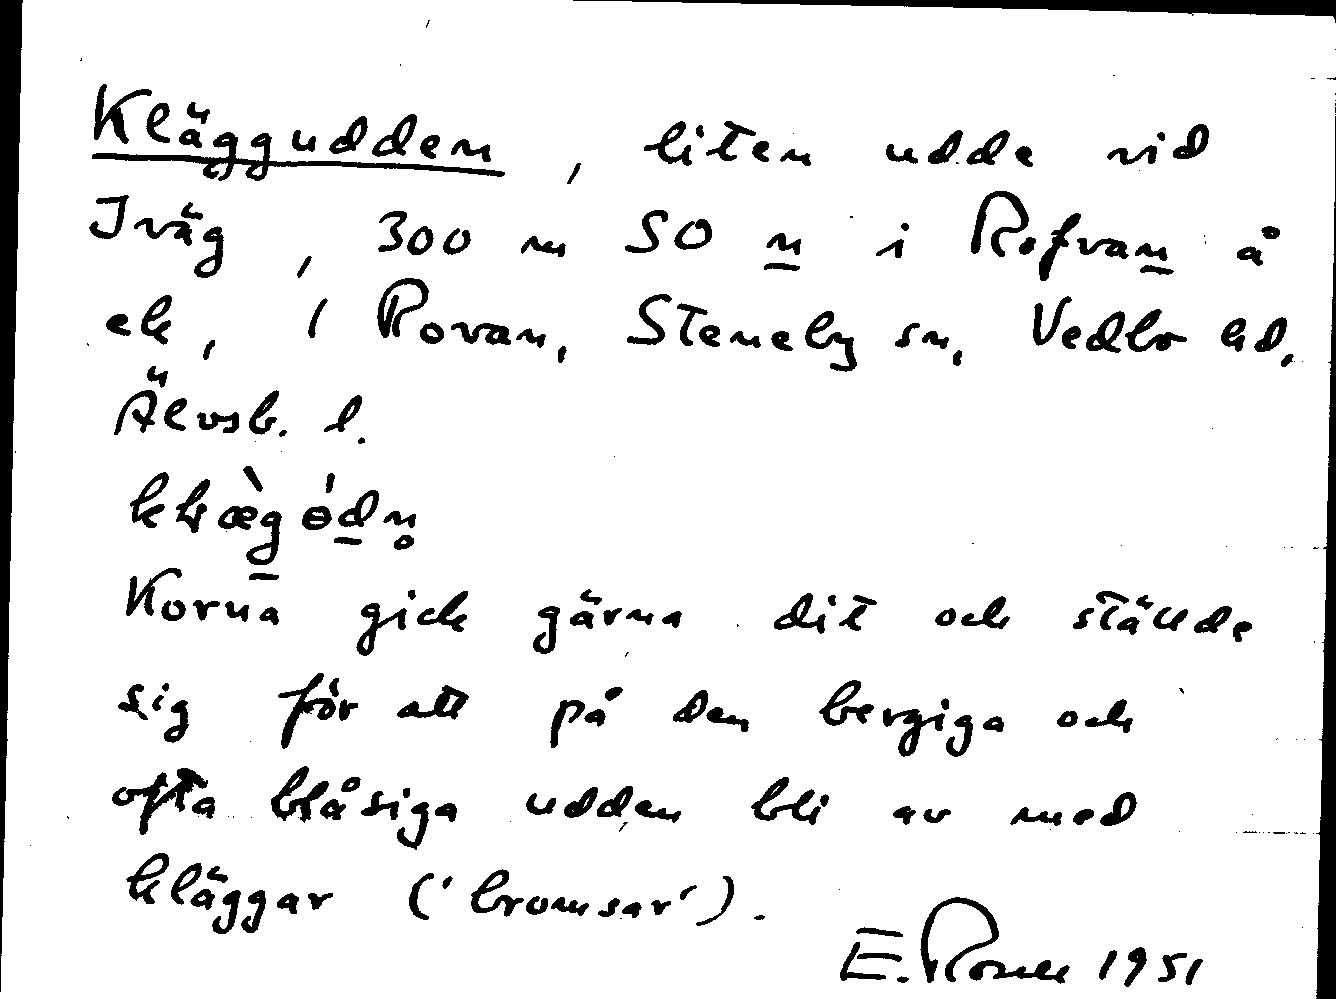 Kläggudden, liten udde vid
Iväg, 300 m SO n i Rofvan å
ek, 1 Rovan, Steneby sn, Vedbo hd,
Älvsb. l.
Korna gick gärna dit och ställde
sig för att på den bergiga och
ofta blåsiga udden bli av med
kläggar ('bromsar').
E. 1951